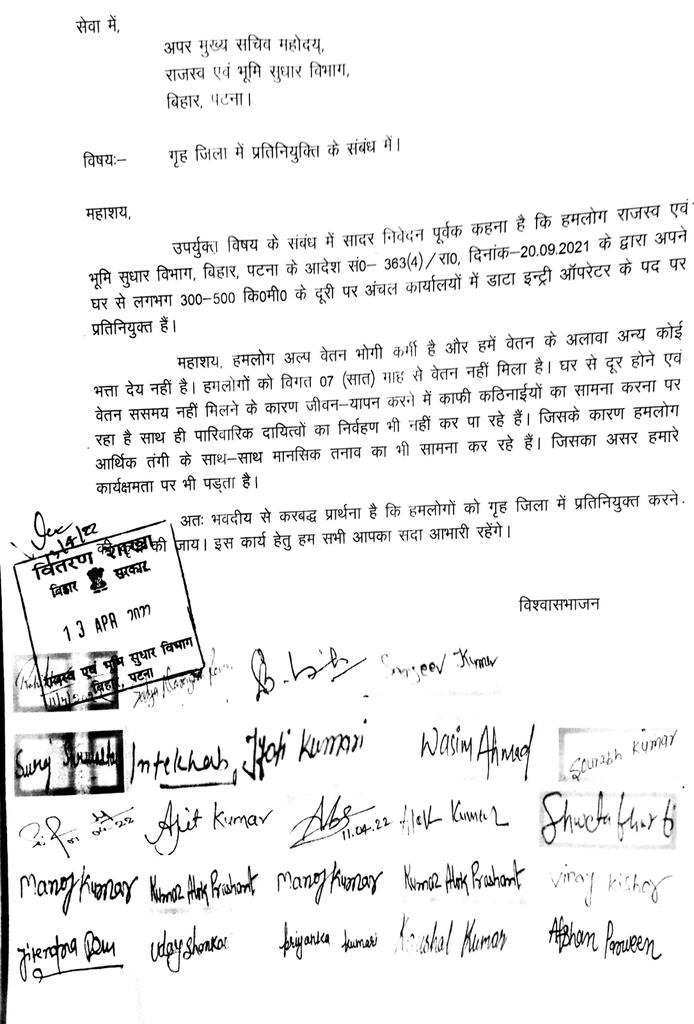 सेवा में,
अपर मुख्य सचिव महोदय,
राजस्व एवं भूमि सुधार विभाग,
बिहार, पटना।
विषयः– गृह जिला में प्रतिनियुक्ति के संबंध में।
महाशय,
उपर्युक्त विषय के संबंध में सादर निवेदन पूर्वक कहना है कि हमलोग राजस्व एवं
भूमि सुधार विभाग, बिहार, पटना के आदेश सं0– 363(4)/रा0, दिनांक–20.09.2021 के द्वारा अपने
घर से लगभग 300–500 कि0मी0 के दूरी पर अंचल कार्यालयों में डाटा इन्ट्री ऑपरेटर के पद पर
प्रतिनियुक्त हैं।
महाशय, हमलोग अल्प वेतन भोगी कर्मी है और हमें वेतन के अलावा अन्य कोई
भत्ता देय नहीं है। हमलोगों को विगत 07 (सात) माह से वेतन नहीं मिला है। घर से दूर होने एवं
वेतन ससमय नहीं मिलने के कारण जीवन–यापन करने में काफी कठिनाईयों का सामना करना पर
रहा है साथ ही पारिवारिक दायित्वों का निर्वहण भी नहीं कर पा रहे हैं। जिसके कारण हमलोग
आर्थिक तंगी के साथ–साथ मानसिक तनाव का भी सामना कर रहे हैं। जिसका असर हमारे
कार्यक्षमता पर भी पड़ता है।
अतः भवदीय से करबद्ध प्रार्थना है कि हमलोगों को गृह जिला में प्रतिनियुक्त करने
की जाय। इस कार्य हेतु हम सभी आपका सदा आभारी रहेंगे।
वितरण शाखा
बिहार सरकार
13 APR 2022
राजस्व एवं भूमि सुधार विभाग
बिहार, पटना
विश्वासभाजन
Sanjeev Kumar
Intekhab, Jyoti Kumari Wasim Ahmad Sourabh Kumar
Ajit Kumar 11.04.22 Alok Kumar Shweta bharti
Manoj Kumar Kumar Alok Prashant Manoj Kumar Kumar Alok Prashant Vinay Kishor
Jitendra Uday Shankar Priyanka kumari Kaushal Kumar Afshan Parween